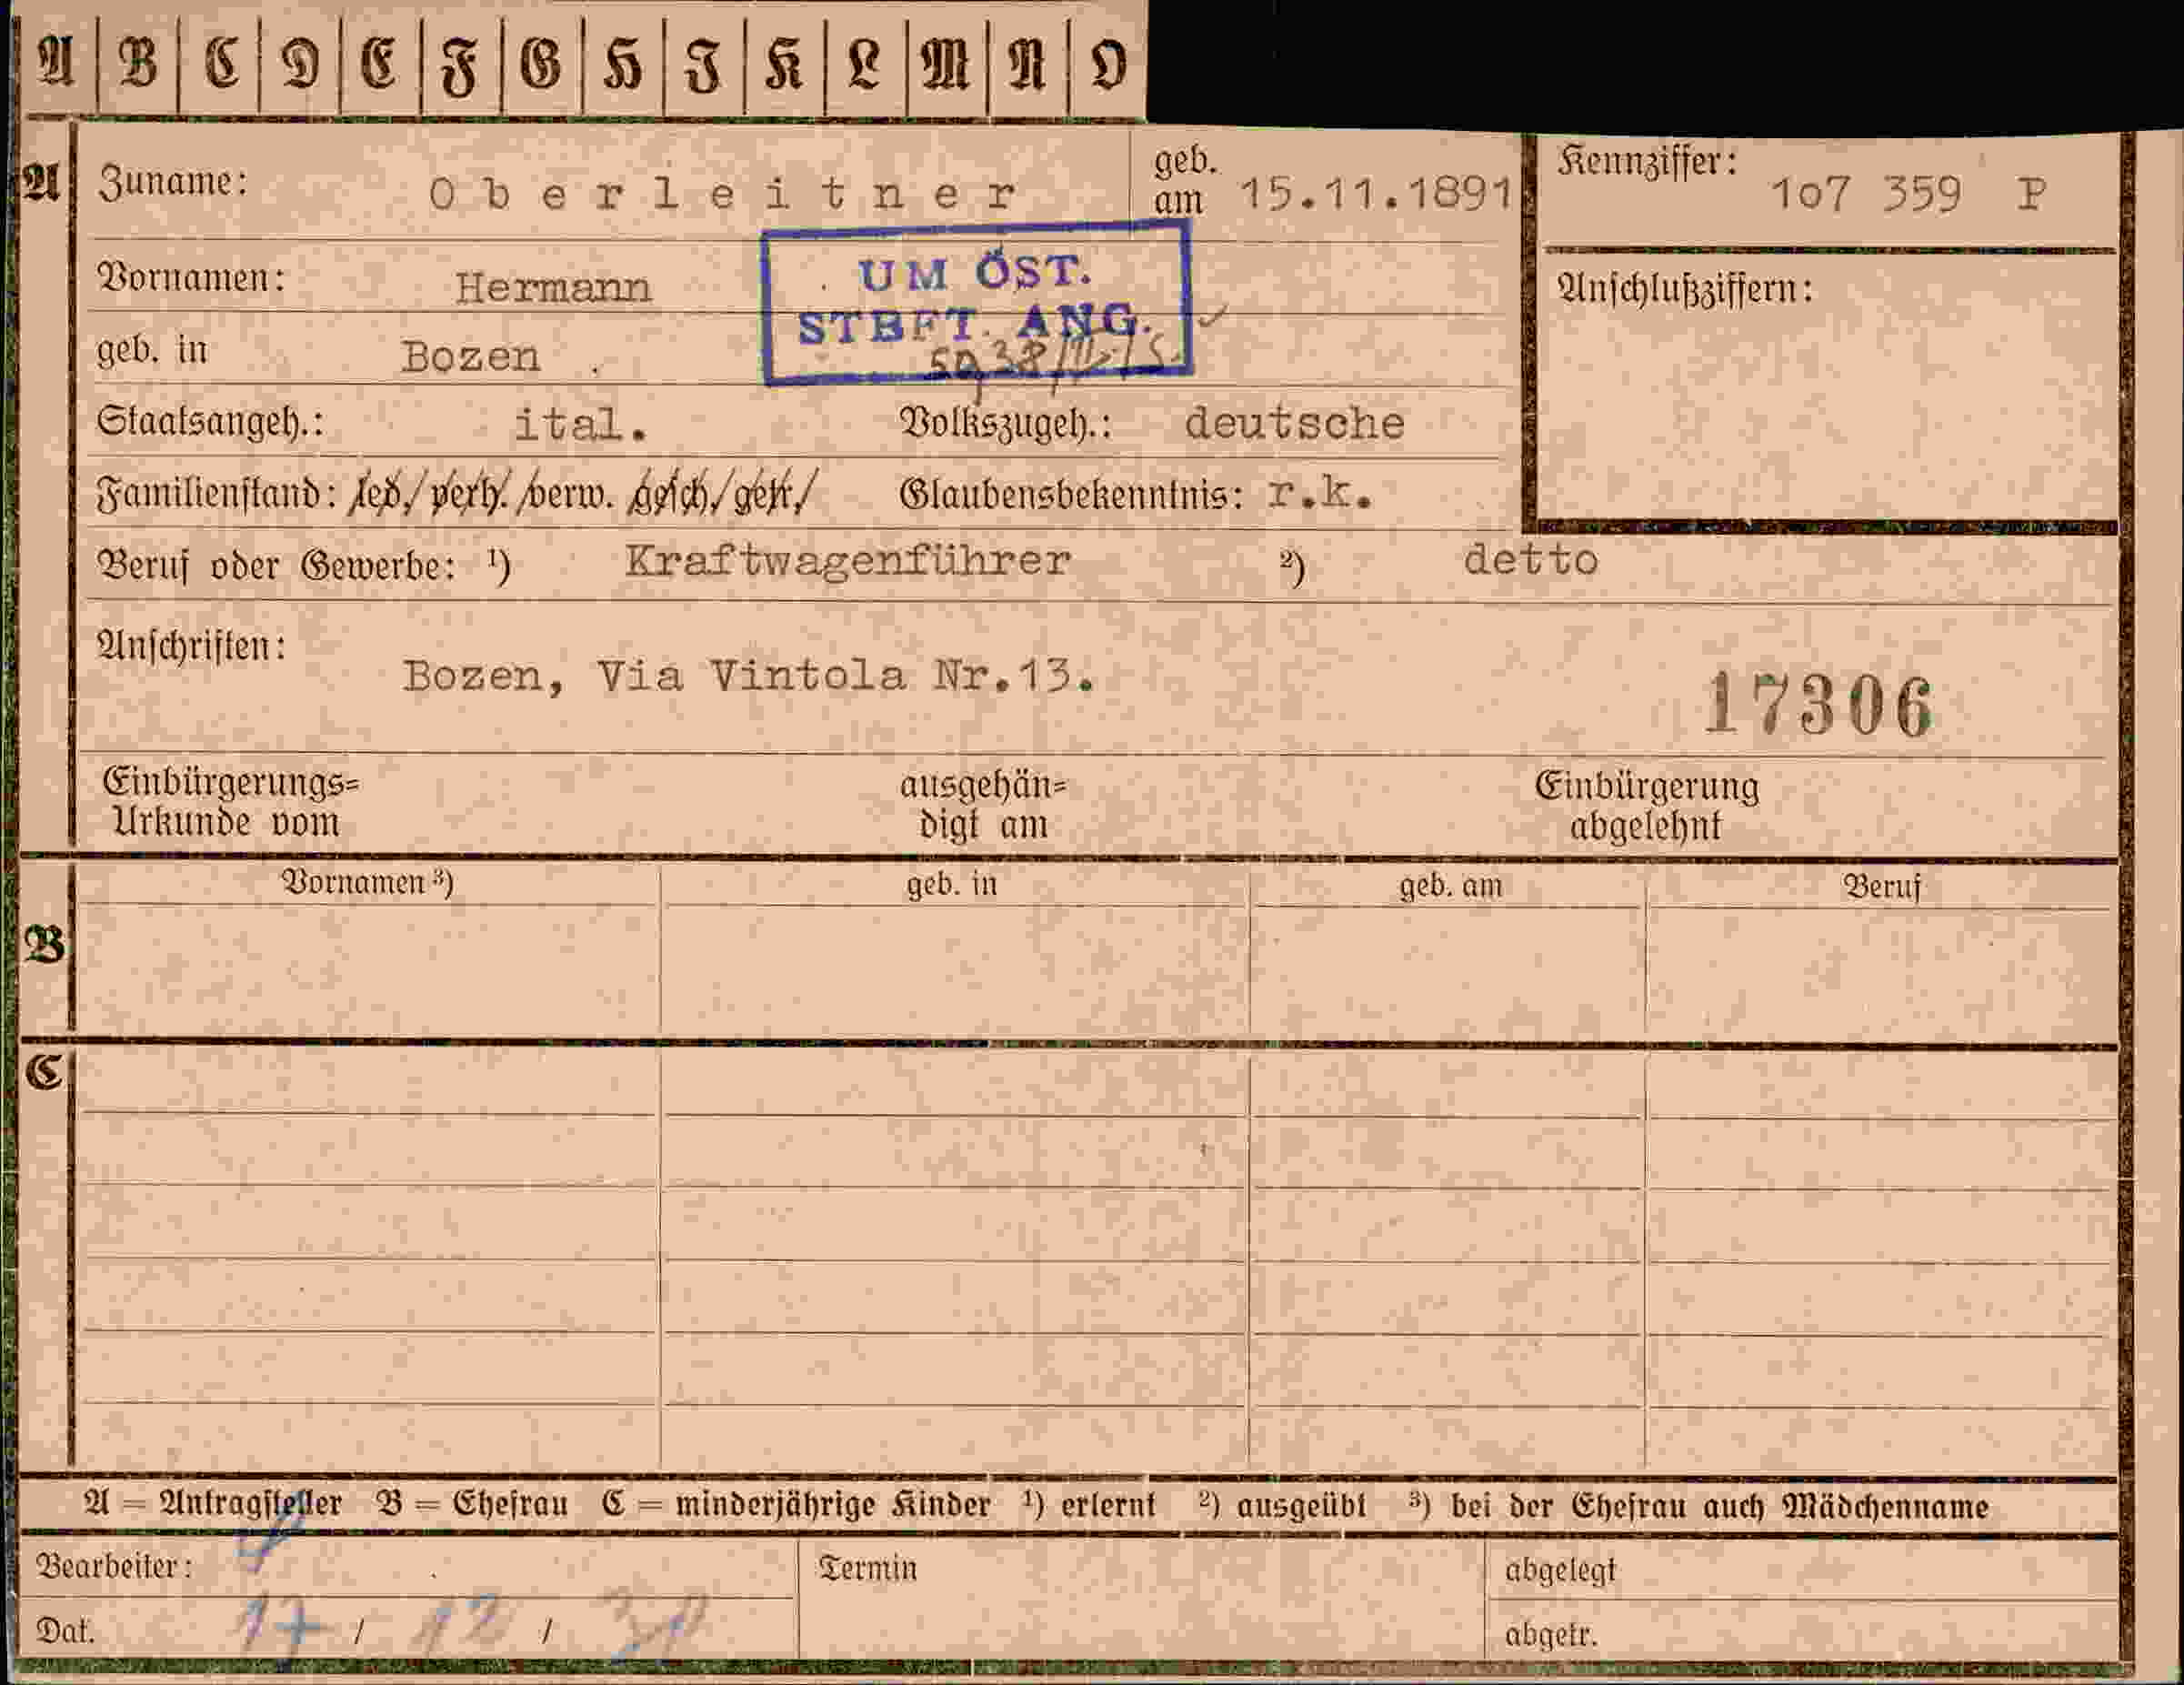 A B C D E F G H I K L M N O
A Zuname: Oberleitner geb. am 15.11.1891 Kennziffer: 1o7 359 P
Vornamen: Hermann UM ÖST. Anschlußziffern:
STBFT. ANG.
geb. in Bozen .
Staatsangeh.: ital. Volkszugeh.: deutsche
Familienstand: led./ verh./ verw. gesch./ getr./ Glaubensbekenntnis: r.k.
Beruf oder Gewerbe: ¹) Kraftwagenführer ²) detto
Anschriften: Bozen, Via Vintola Nr.13.
17306
Einbürgerungs= ausgehän= Einbürgerung
Urkunde vom digt am abgelehnt
Vornamen ³) geb. in geb. am Beruf
B
C
A = Antragsteller B = Ehefrau C = minderjährige Kinder ¹) erlernt ²) ausgeübt ³) bei der Ehefrau auch Mädchenname
Bearbeiter: Termin abgelegt
Dat. 17 / 12 / abgetr.